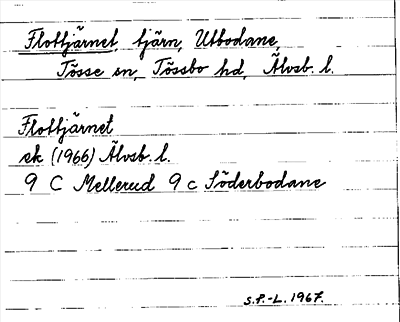 Flottjärnet, tjärn, Utbodane,
Tösse sn, Tössbo hd, Älvsb. l.
Flottjärnet
ek (1966) Älvsb. l.
9 C Mellerud 9 c Söderbodane
S.P.-L. 1967.